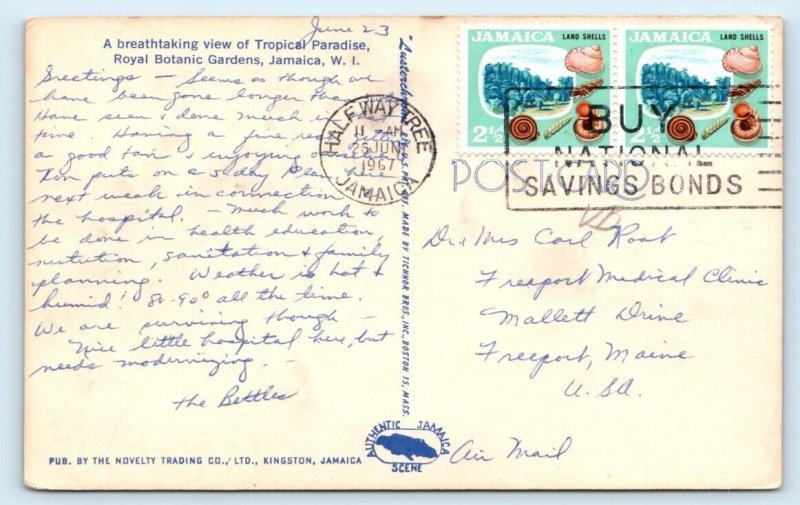 June 23
A breathtaking view of Tropical Paradise,
Royal Botanic Gardens, Jamaica, W. I.
Greetings – Seems as though we
have been gone longer than
Have seen & done much in
time. Having a fine rest
a good tan & enjoying
puts on a 5 day
next week in connection
the hospital. – Much work to
be done in health education,
nutrition, sanitation & family
planning. Weather is hot &
humid! 80-90° all the time.
We are surviving though –
Nice little hospital here, but
needs modernizing. –
the Bettles
PUB. BY THE NOVELTY TRADING CO., LTD., KINGSTON, JAMAICA
MADE BY TICHNOR BROS., INC., BOSTON 15, MASS.
AUTHENTIC JAMAICA
SCENE
HALF WAY TREE
11 - AM
26 JUN
1967
JAMAICA
JAMAICA LAND SHELLS
2½
JAMAICA LAND SHELLS
2½
BUY
NATIONAL
SAVINGS BONDS
POST CARD
Dr. & Mrs Carl Root
Freeport Medical Clinic
Mallett Drive
Freeport, Maine
U.S.A.
Air Mail